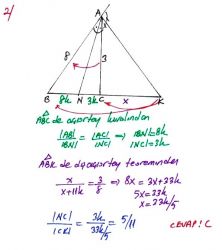 2/
A
8
3
B 8k N 3k C x K
ABC de açıortay kuralından
|AB|/|BN| = |AC|/|NC| ⇒ |BN|=8k
|NC|=3k
ABK de dış açıortay teoreminden
x/(x+11k) = 3/8 ⇒ 8x = 3x+33k
5x = 33k
x = 33k/5
|NC|/|CK| = 3k/(33k/5) = 5/11
CEVAP: C